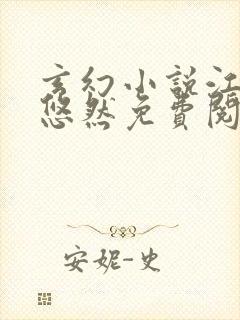 玄幻小说江
悠然免费阅
安妮-史